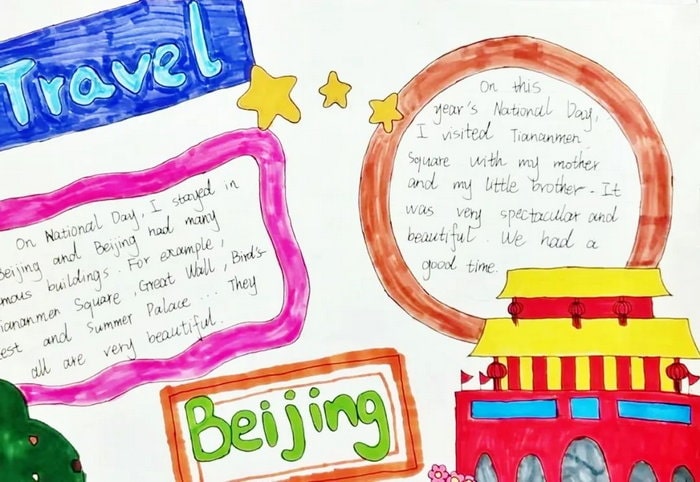 Travel
On National Day, I stayed in
Beijing and Beijing had many
mous buildings. For example,
iananmen Square, Great Wall, Bird's
est and Summer Palace... They
all are very beautiful.
On this
year's National Day,
I visited Tiananmen
Square with my mother
and my little brother. It
was very spectacular and
beautiful. We had a
good time.
Beijing